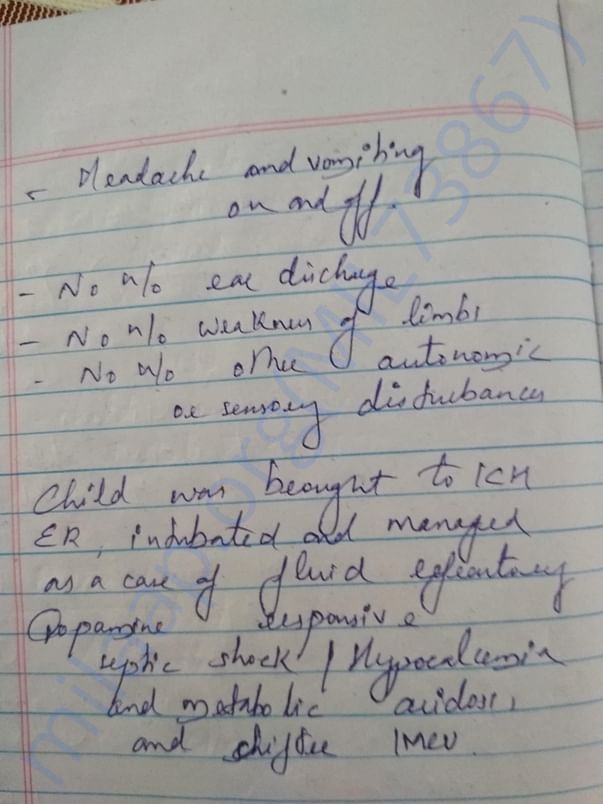 - Headache and vomiting
on and off.
- No h/o ear discharge
- No h/o weakness of limbs
- No h/o other autonomic
or sensory disturbances
Child was brought to ICH
ER, intubated and managed
as a case of fluid refractory
Dopamine responsive
septic shock / Hypocalcemia
and metabolic acidosis,
and shifted IMCU.
milaap.org(MIL73867)